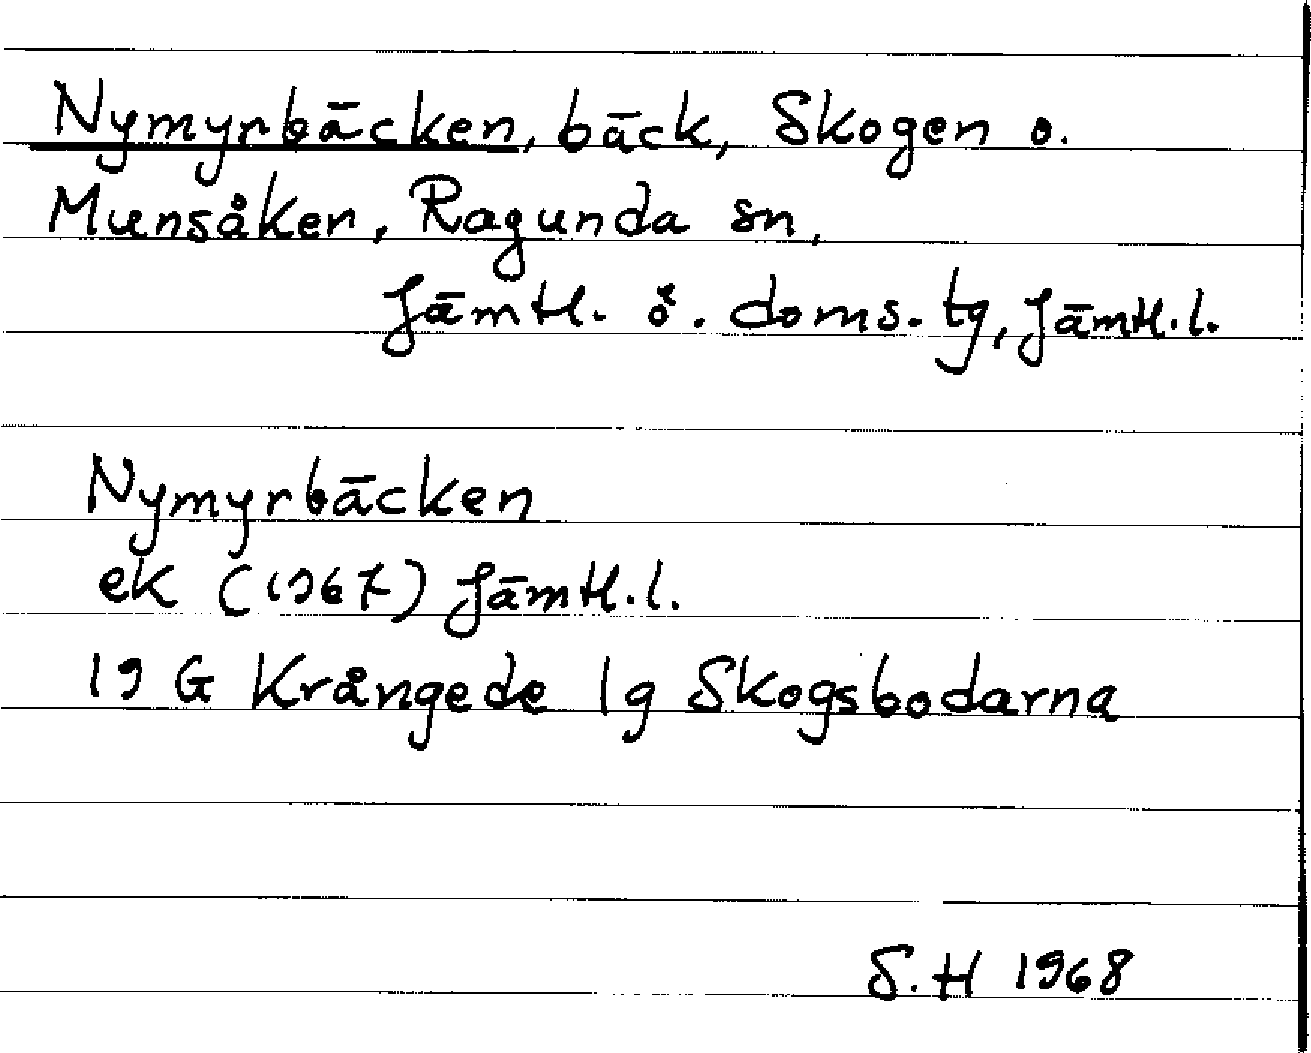 Nymyrbäcken, bäck, Skogen o.
Munsåker, Ragunda sn,
Jämtl. ö. doms. tg, Jämtl. l.
Nymyrbäcken
ek (1967) Jämtl. l.
19 G Krångede 1g Skogsbodarna
S.H 1968